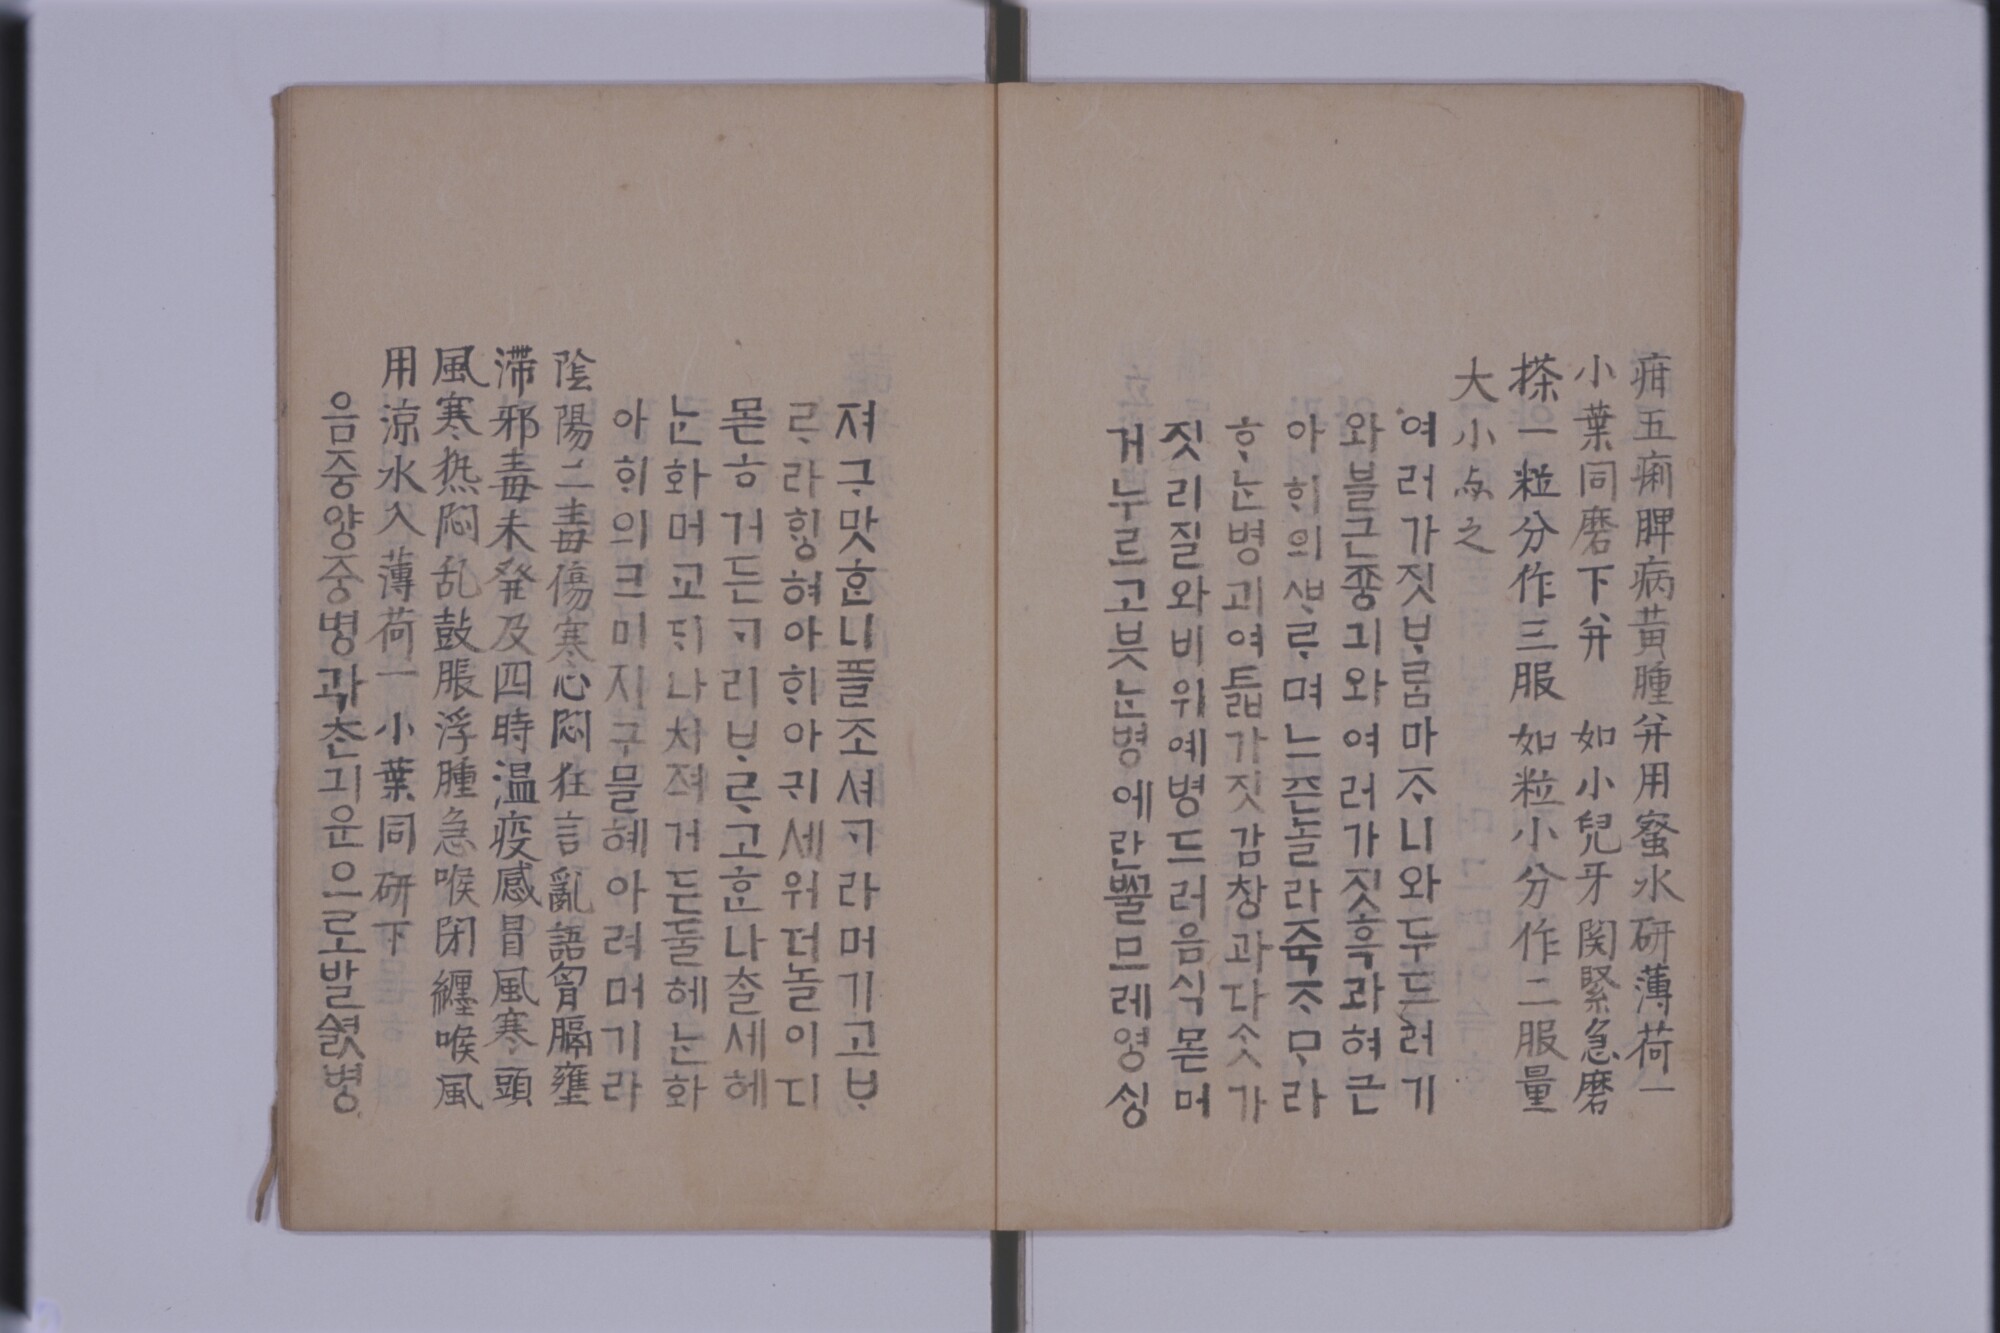 疳五痢脾病黃腫幷用蜜水研薄荷一
小葉同磨下幷　如小兒牙関緊急磨
搽一粒分作三服如粒小分作二服量
大小与之
여러가짓ᄇᆞᄅᆞᆷ마ᄌᆞ니와두드러기
와블근죵긔와여러가짓흑과혀근
아ᄒᆡ의ᄲᆞᄅᆞ며느즌놀라죽ᄌᆞᄆᆞ라
ᄒᆞᄂᆞᆫ병괴여듧가짓감창과다ᄉᆞᆺ가
짓리질와비위예병드러음식몯머
거누르고븟ᄂᆞᆫ병에란ᄢᅮᆯ므레영싱
져그맛ᄒᆞᆫ니플조셔ᄀᆞ라머기고ᄇᆞ
ᄅᆞ라ᄒᆡᆼ혀아ᄒᆡ아귀세워뎌놀이디
몯ᄒᆞ거든ᄀᆞ리ᄇᆞᄅᆞ고ᄒᆞᆫ나ᄎᆞᆯ세헤
ᄂᆞᆫ화머고ᄃᆡ나치젹거든둘헤ᄂᆞᆫ화
아ᄒᆡ의크미지구믈혜아려머기라
陰陽二毒傷寒心悶狂言亂語胷膈壅
滯邪毒未發及四時溫疫感冒風寒頭
風寒熱悶乱鼓脹浮腫急喉閉纏喉風
用凉水入薄荷一小葉同硏下
음중양중병과ᄎᆞᆫ긔운으로발ᄉᆡᆺ병